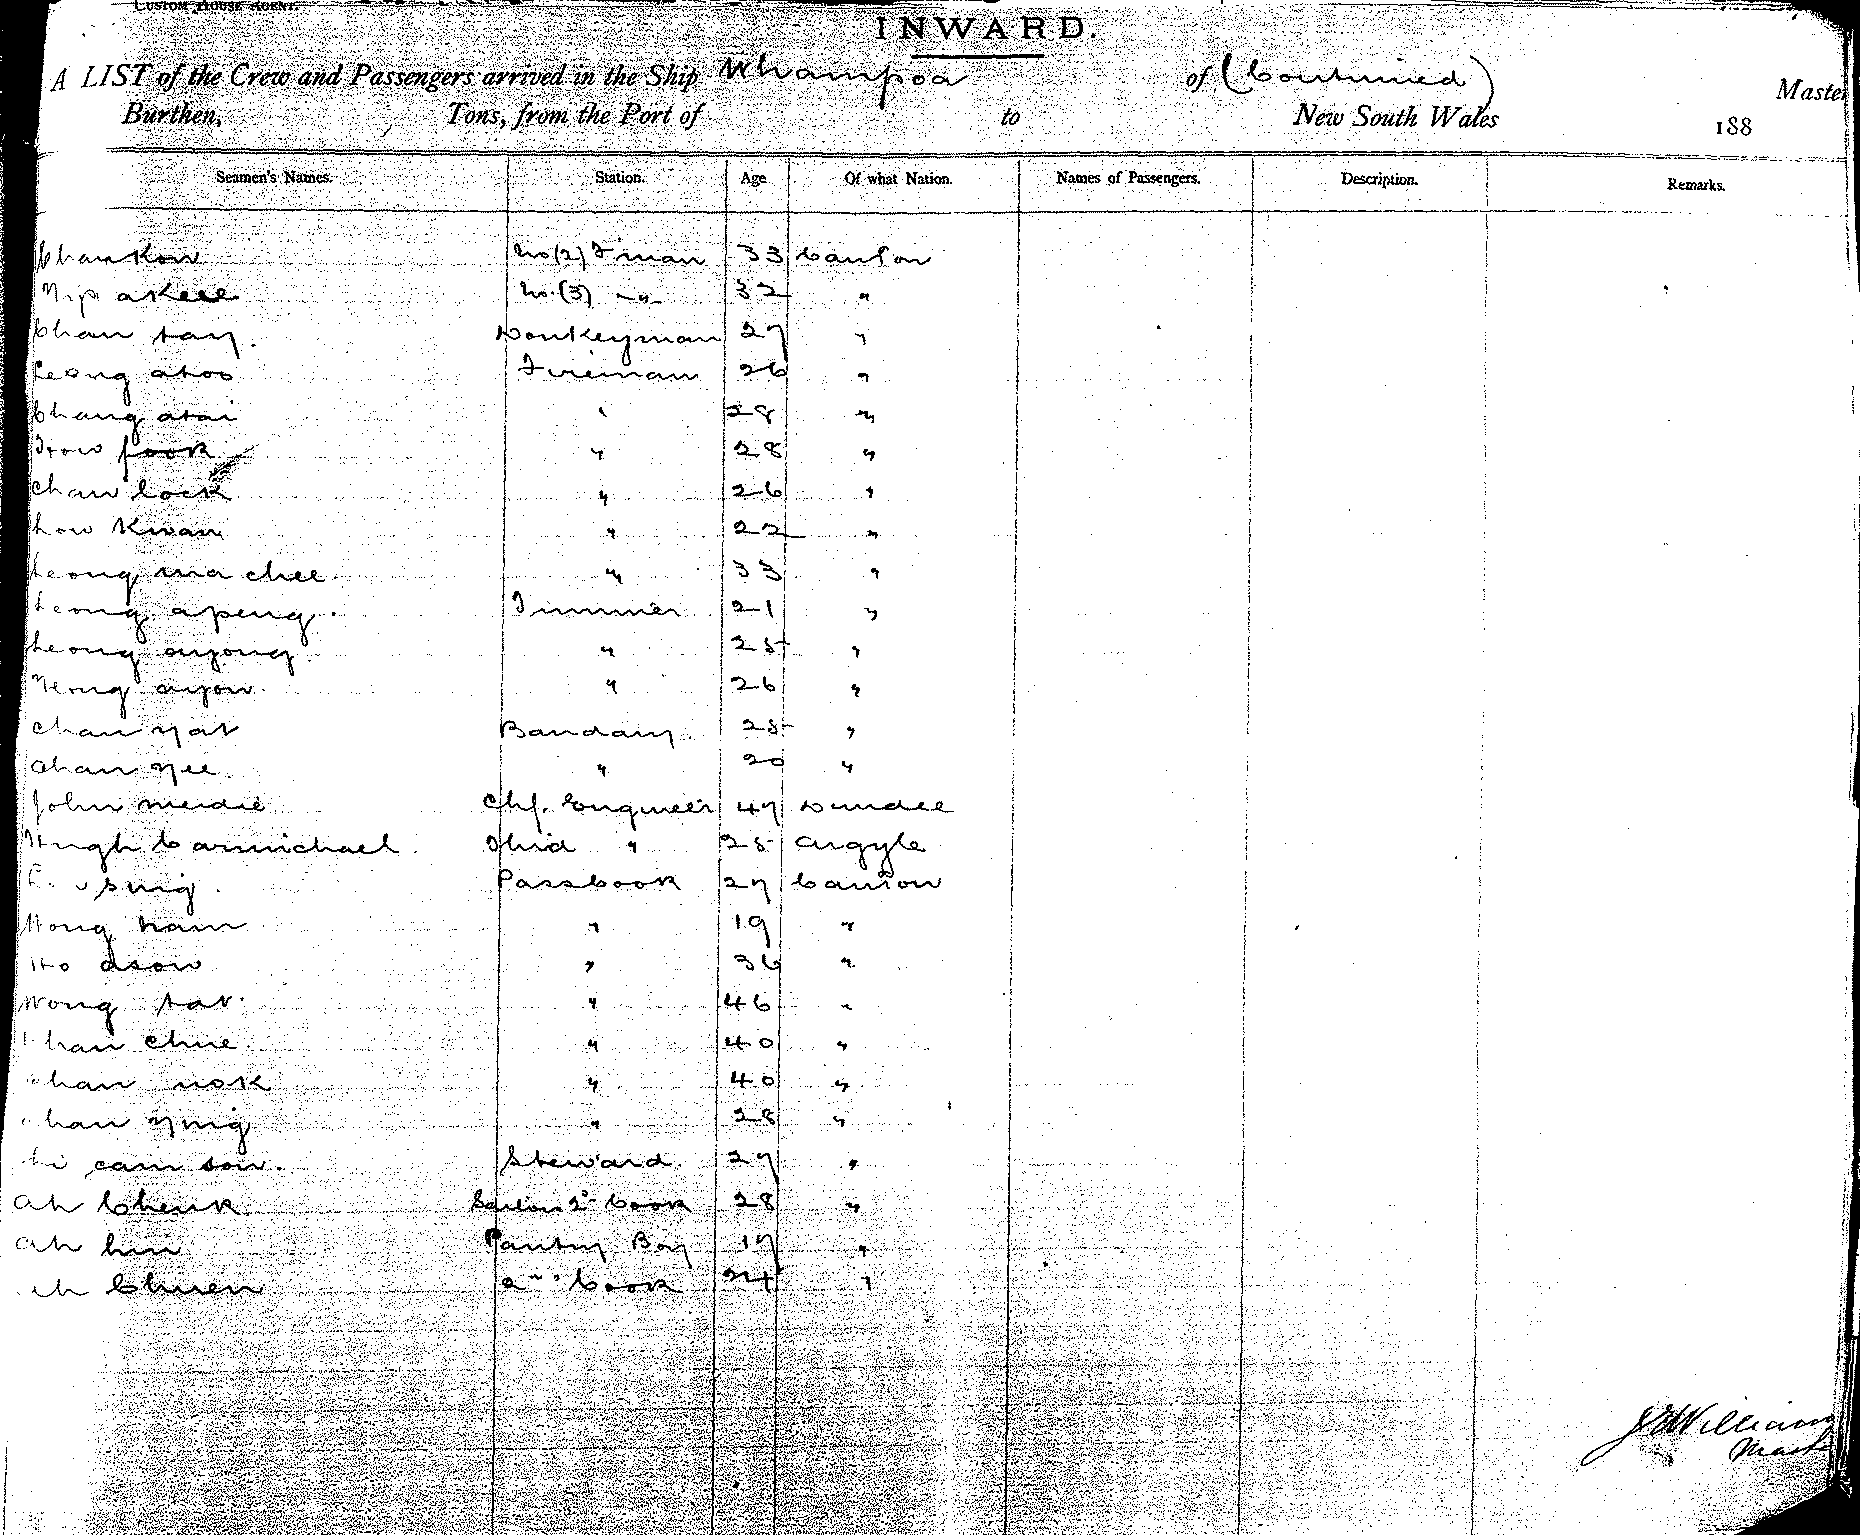 CUSTOM HOUSE AGENT.
INWARD.
A LIST of the Crew and Passengers arrived in the Ship Whampoa of (Continued) Master
Burthen, Tons, from the Port of to New South Wales 188
Seamen's Names. Station. Age Of what Nation. Names of Passengers. Description. Remarks.
Chan Kow No (2) F'man 33 Canton
Yip akeee No. (3) -„- 32 „
Chan tay. Donkeyman 27 „
Leong ahoo Fireman 26 „
Chang atai „ 28 „
fook „ 28 „
Chan look „ 26 „
how Kwan „ 22 „
Leong ma chee „ 33 „
Leong apeng. Trimmer 21 „
Leong ayong „ 25 „
ayow „ 26 „
Chan yat 25 „
Chan yee „ 20 „
John Meidie Chf. Engineer 47 Dundee
Hugh Carmichael Third „ 25 Argyle
sing Pass Cook 27 Canton
Wong ham „ 19 „
Ho asow „ 36 „
Wong tat „ 46 „
Chan chue „ 40 „
Chan nok „ 40 „
Chan ying „ 28 „
Li cam sow. Steward 27 „
Ah Cheuk Sailors 2nd Cook 28 „
Ah hin Pantry Boy 17 „
Ah Chuen Cook 24 „
Williams
Mast